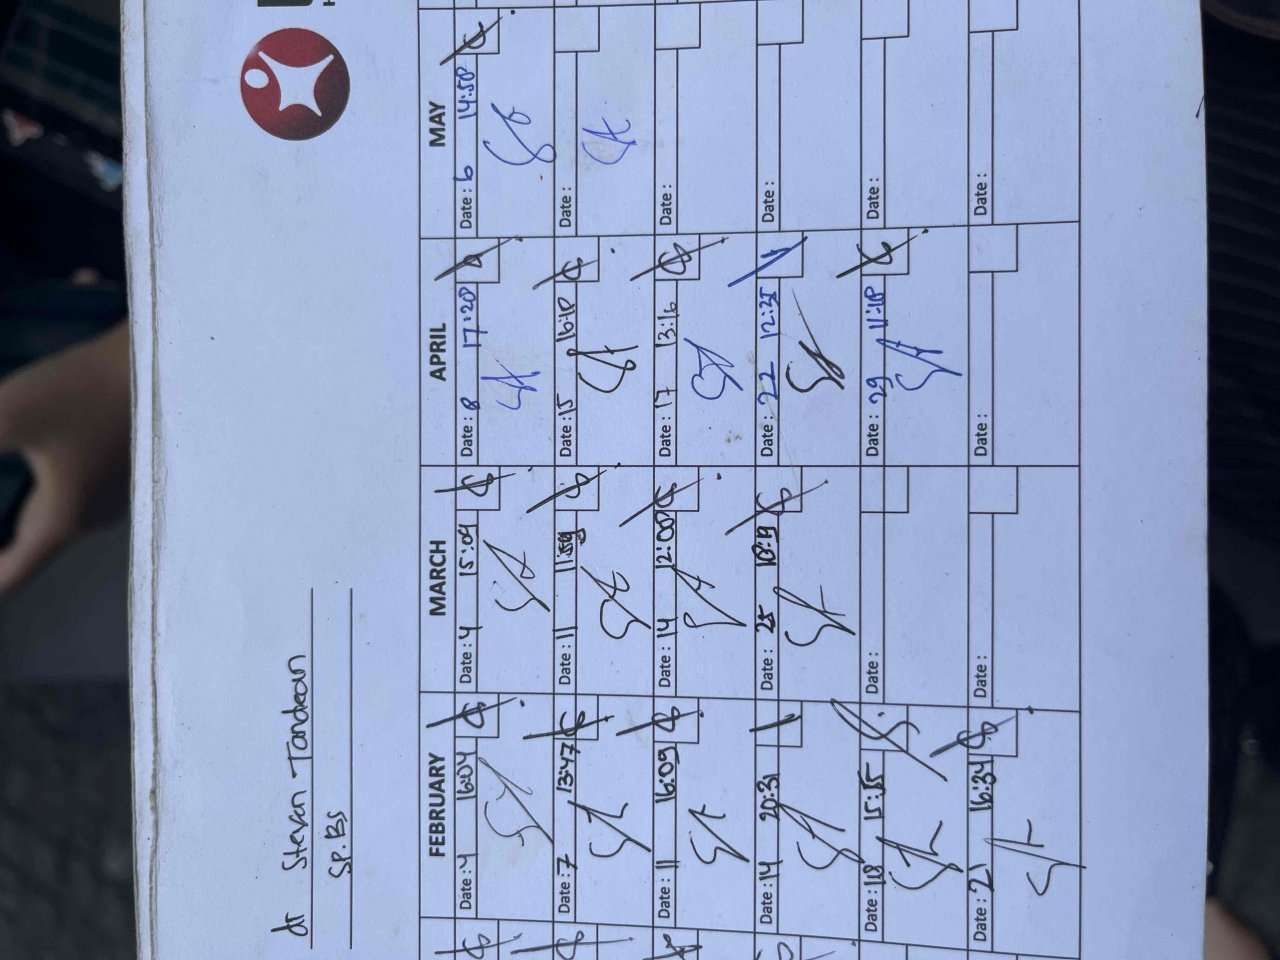 dr Stevan Tandean
Sp.Bs
FEBRUARY MARCH APRIL MAY
Date: 4 16:04 Date: 4 15:04 Date: 8 17:20 Date: 6 14:50
Date: 7 13:47 Date: 11 11:59 Date: 15 16:10 Date:
Date: 11 16:09 Date: 14 12:00 Date: 17 13:16 Date:
Date: 14 20:31 Date: 25 Date: 22 Date:
Date: 18 15:15 Date: Date: 29 11:10 Date:
Date: 21 16:34 Date: Date: Date: